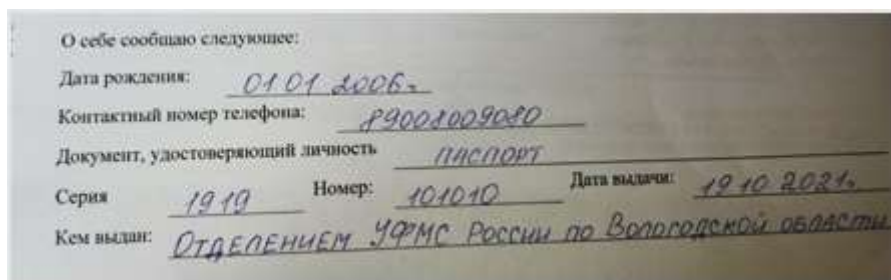 О себе сообщаю следующее:
Дата рождения: 01 01 2006г.
Контактный номер телефона: 89008009080
Документ, удостоверяющий личность ПАСПОРТ
Серия 1919 Номер: 101010 Дата выдачи: 19.10.2021г.
Кем выдан: ОТДЕЛЕНИЕМ УФМС РОССИИ ПО ВОЛОГОДСКОЙ ОБЛАСТИ